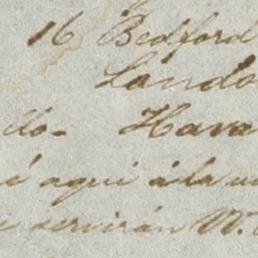 16 Bedford
Londo
llo- Hava
é aquí á la u
e servirán W.